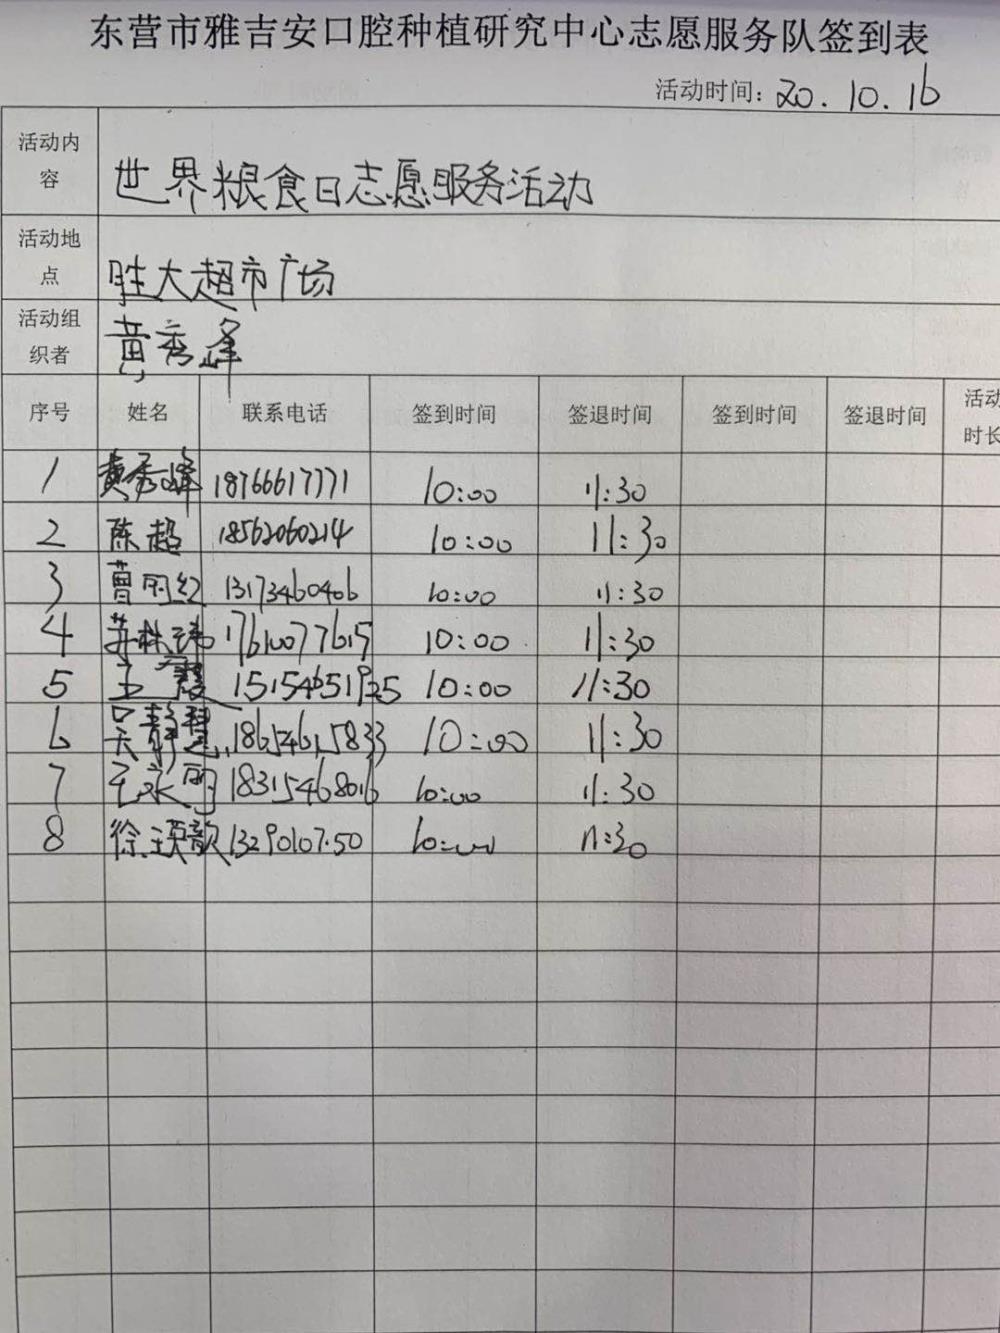 东营市雅吉安口腔种植研究中心志愿服务队签到表
活动时间：20.10.16
活动内容 世界粮食日志愿服务活动
活动地点 胜大超市广场
活动组织者 黄秀峰
序号 姓名 联系电话 签到时间 签退时间 签到时间 签退时间 活动时长
1 黄秀峰 18766617771 10:00 11:30
2 陈超 18562060214 10:00 11:30
3 曹丽红 13173460406 10:00 11:30
4 苏林 17610077615 10:00 11:30
5 王霞 15154651925 10:00 11:30
6 吴静 18654615833 10:00 11:30
7 王永丽 18315468016 10:00 11:30
8 徐 歆 13290107.50 10:00 11:30